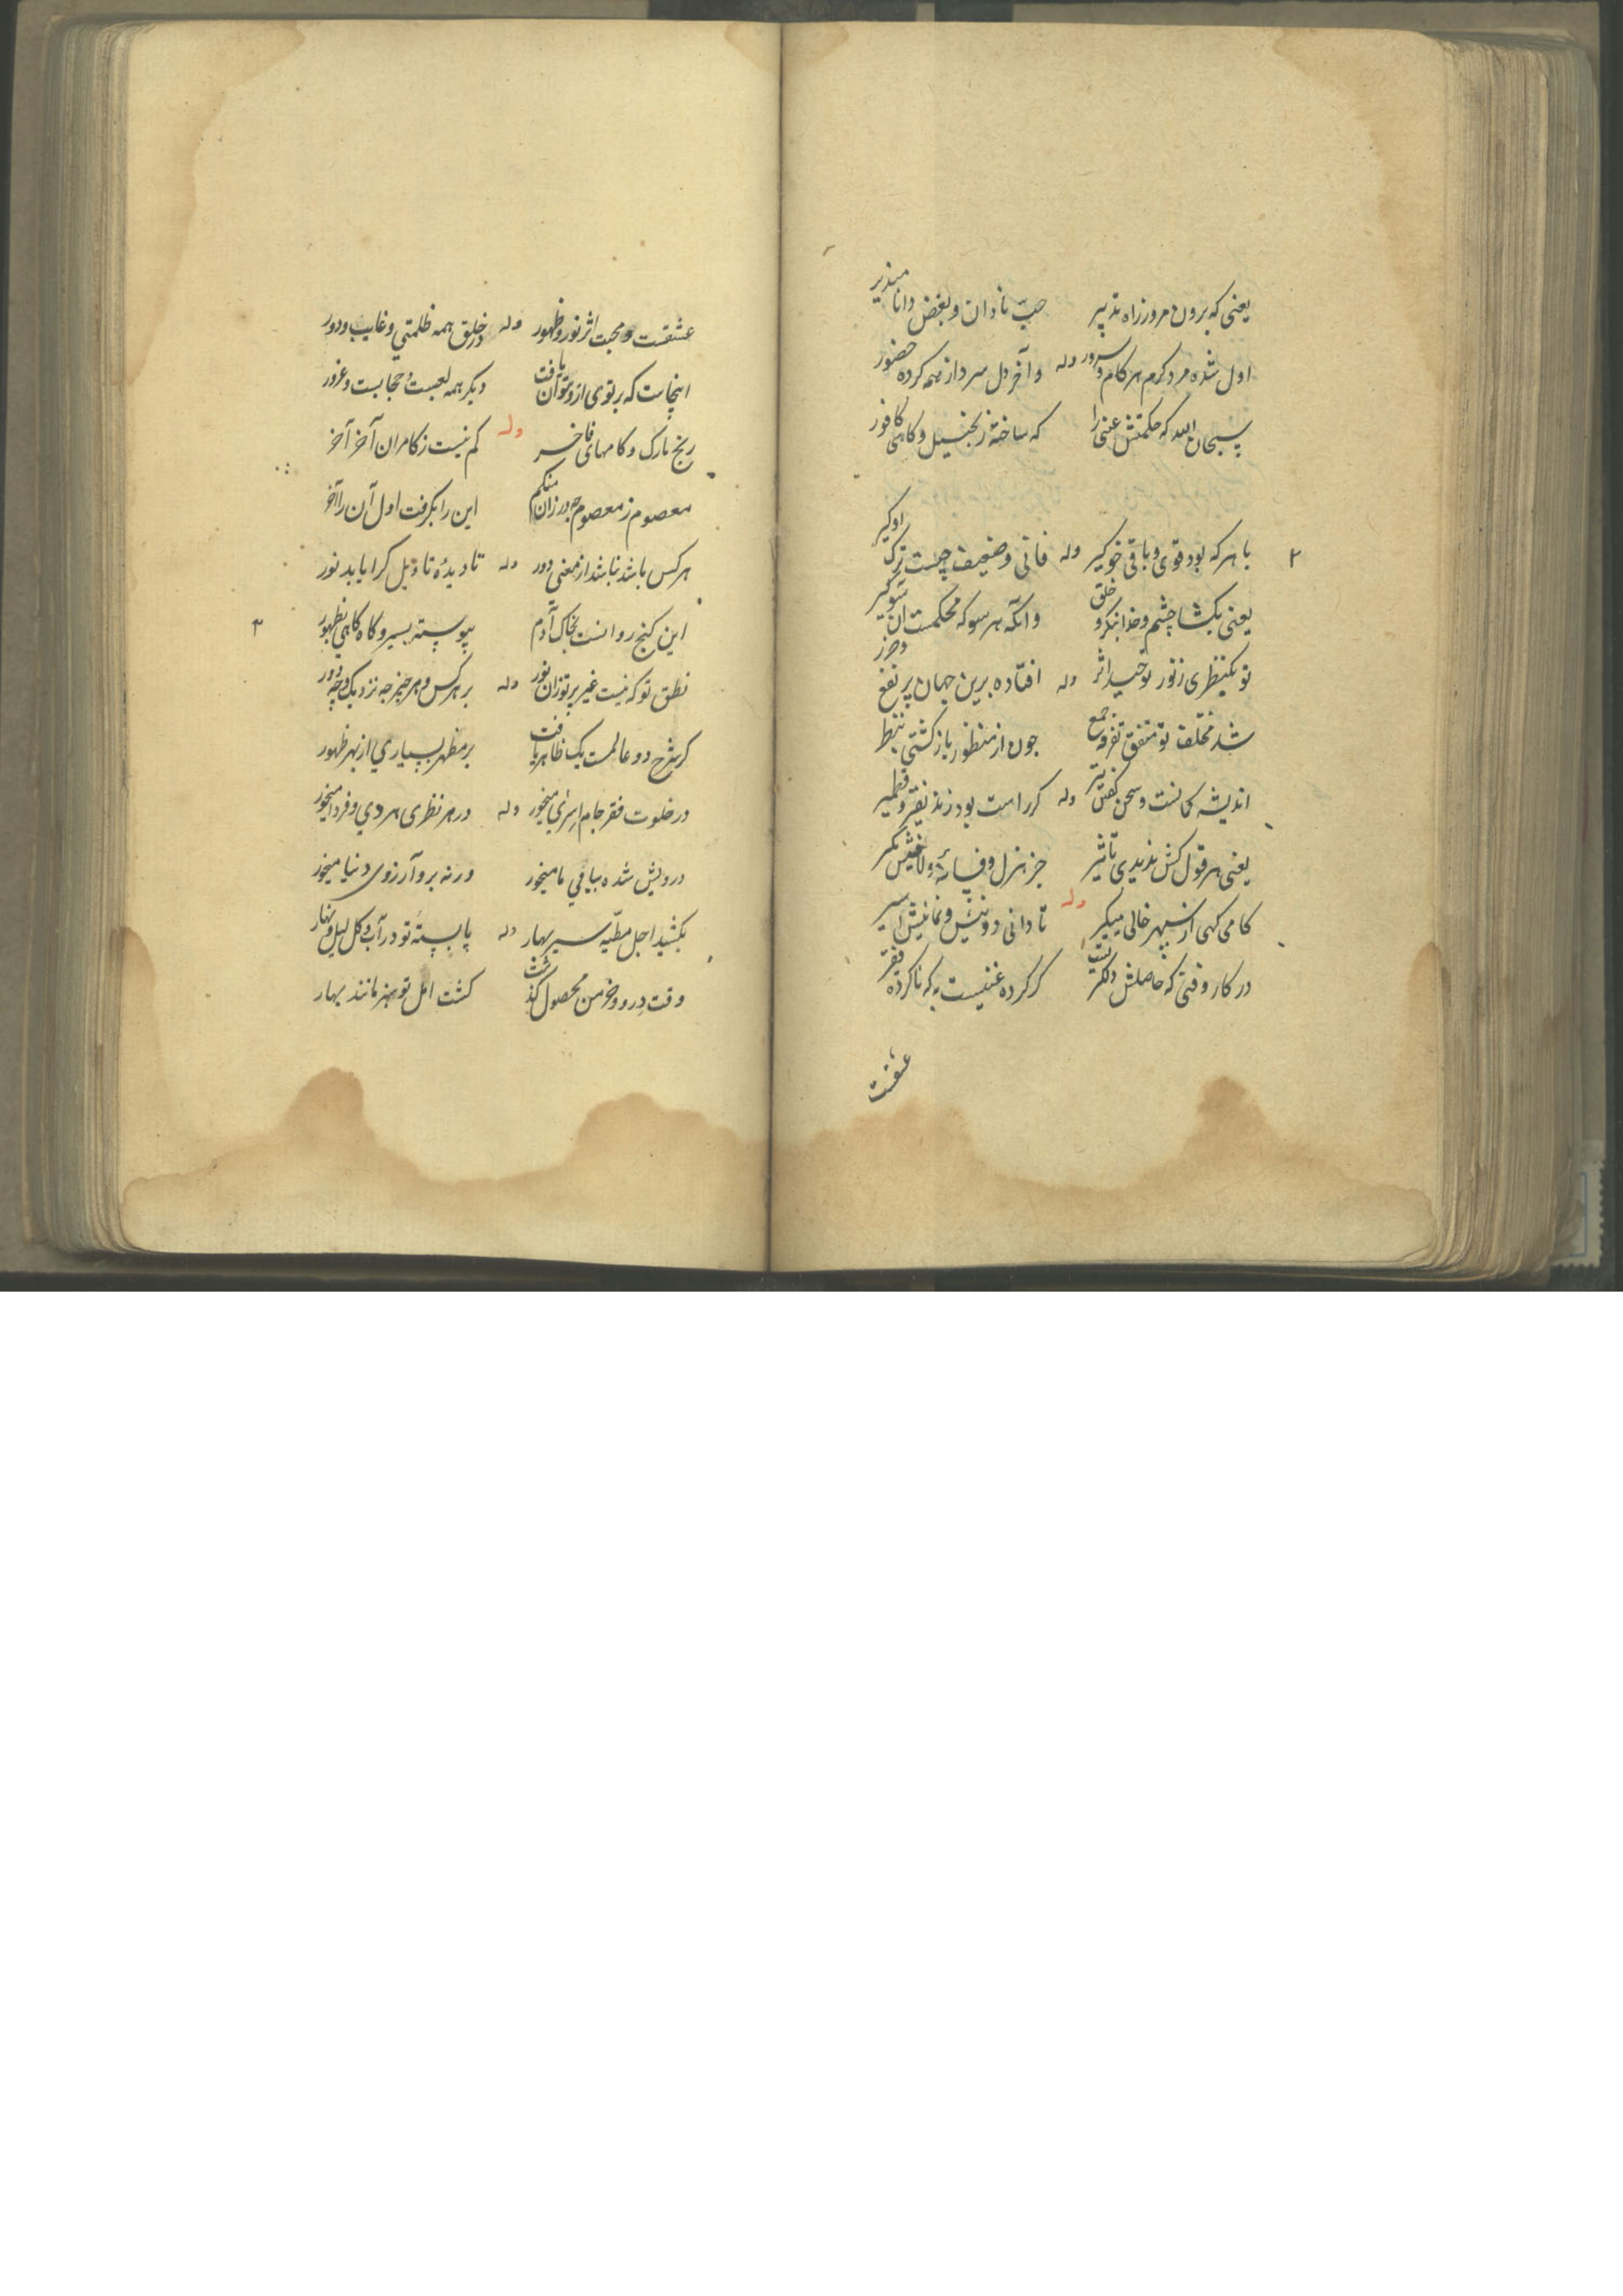 یعنی که برون مرو ز راه تدبیر حب نادان و بغض دانا مپذیر
اول شده مرد کرم هر کام و سرور وله و آخر دل سرد از همه کرده حضور
سبحان الله که حکمتش عنین را که ساخته زنجبیل و کاهی کافور
۲ با هر که بود قوی و باقی خو گیر وله فانی و ضعیف چیست ترک او گیر
یعنی بگشا چشم و خدا بنگر و خلق وانگه هر سو که محکمست آن سو گیر
تو یکنظری ز نور توحید اثر وله افتاده برین جهان پر نفع و ضرر
شد مختلف تو متفق تفرقه جمع چون از منظور بازگشتی بنظر
اندیشه کمانست و سخن کفتن تیر وله
یعنی هر قول کش ندیدی تاثیر جز هزل و فسانه و لاغیش مگیر
کامی که‌ی از سپهر خالی میگیر وله تا دانی دو نیش و نمانیش اسیر
در کار وفتی که حاصلش دلگیر است گر کرده غنیست به که ناکرده فقیر
عشقست
عشقست و محبت اثر نور و ظهور وله در خلق همه ظلمتی و غایب و دور
اینجاست که پرتوی ازو بتوان یافت دیگر همه لعبست و حجابست و غرور
رنج تارک و کامهای فاخر وله کم نیست ز کامران آخر آخر
معصوم ز معصوم چه ورزان منگر این را بگرفت اول آن را آخر
هر کس باشد نباشد از معنی دور وله تا دیده تا دیل گرا یابد نور
۳ این گنج روانست بخاک آدم پیوسته بسیر و گاه گاهی بظهور
نطق تو که نیست غیر پرتو زان نور وله بر هر کس و هر چیز چه نزدیک و چه دور
گر شرح دو عالمست یک ظاهر یافت بر مظهر بسیاری از بهر ظهور
در خلوت فقر جام اسری میخور وله در هر نظری هر دی و فردا میخور
درویش شده بباقی ما میخور ورنه برو آرزوی دنیا میخور
بکشید اجل مطیه سیر بهار وله پا بسته تو در آب و گل لیل و نهار
وقت درو و خرمن محصول گذشت کشت امل تو سبز مانند بهار